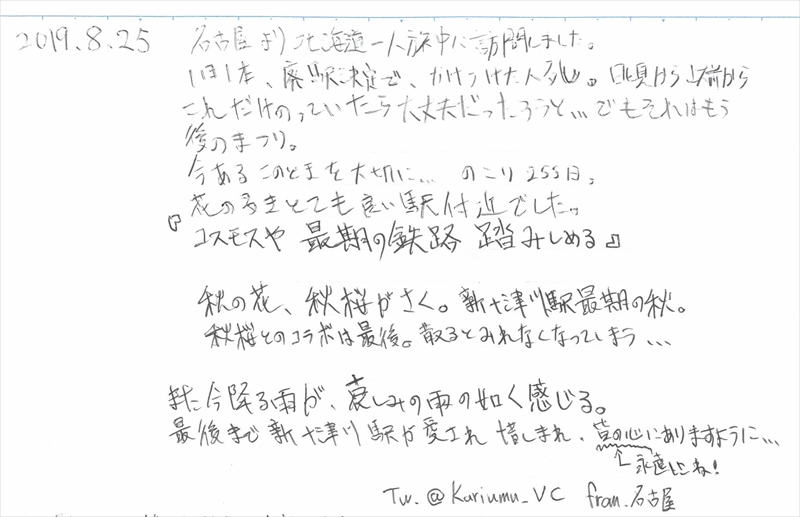 2019.8.25 名古屋より北海道一人旅中に訪問しました。
1日1本、廃駅決定で、かけつけた人多し。日頃から以前から
これだけのっていたら大丈夫だったろうと…でもそれはもう
後のまつり。
今あるこのときを大切に… のこり255日。
花の多きとても良い駅付近でした。
『コスモスや 最期の鉄路 踏みしめる』
秋の花、秋桜がさく。新十津川駅最期の秋。
秋桜とのコラボは最後。散るとみれなくなってしまう…
また今降る雨が、哀しみの雨の如く感じる。
最後まで新十津川駅が愛され惜しまれ、皆の心にありますように…
↑永遠にね!
Tw.@Kariumu_VC from.名古屋